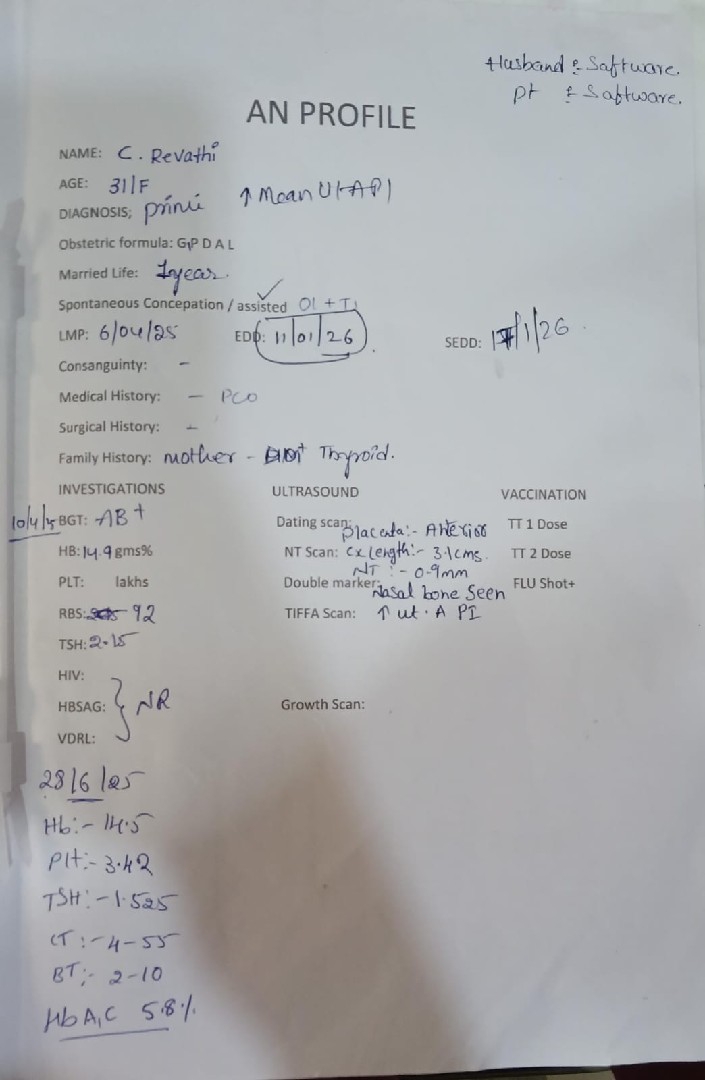 Husband : Saftware.
Pt : Saftware.
AN PROFILE
NAME: C. Revathi
AGE: 31/F
DIAGNOSIS; primi ↑ Mean Ut API
Obstetric formula: G1P D A L
Married Life: 1year.
Spontaneous Concepation / assisted ✓ OI + TI
LMP: 6/04/25 EDD: 11/01/26 SEDD: 17/1/26
Consanguinty: -
Medical History: - PCO
Surgical History: -
Family History: mother - Thyroid.
INVESTIGATIONS ULTRASOUND VACCINATION
10/4/25 BGT: AB+ Dating scan: Placenta:- Anterior TT 1 Dose
HB: 14.9 gms% NT Scan: Cx length:- 3.1cms. TT 2 Dose
NT :- 0.9mm
PLT: lakhs Double marker: Nasal bone Seen FLU Shot+
RBS: 92 TIFFA Scan: ↑ ut. A PI
TSH: 2.15
HIV:
HBSAG: } NR Growth Scan:
VDRL:
28/6/25
Hb:- 14.5
Plt:- 3.42
TSH:- 1.525
CT:- 4-55
BT:- 2-10
HbA1C 5.8%